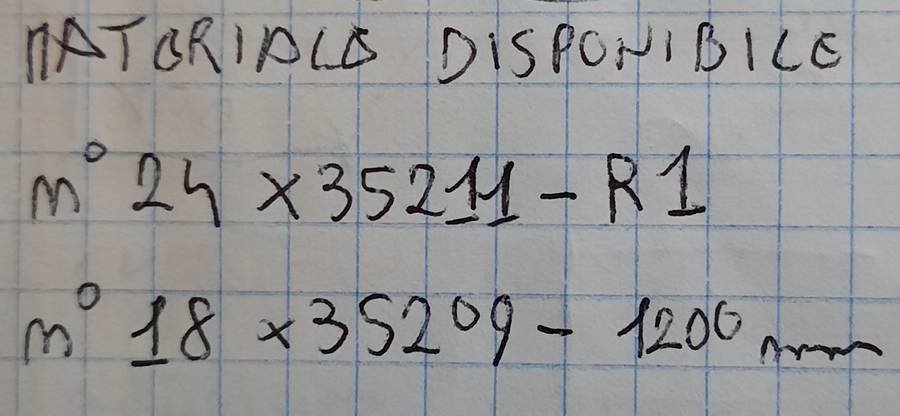 MATERIALE DISPONIBILE
n° 24 x 35211 - R1
n° 18 x 35209 - 1200 mm